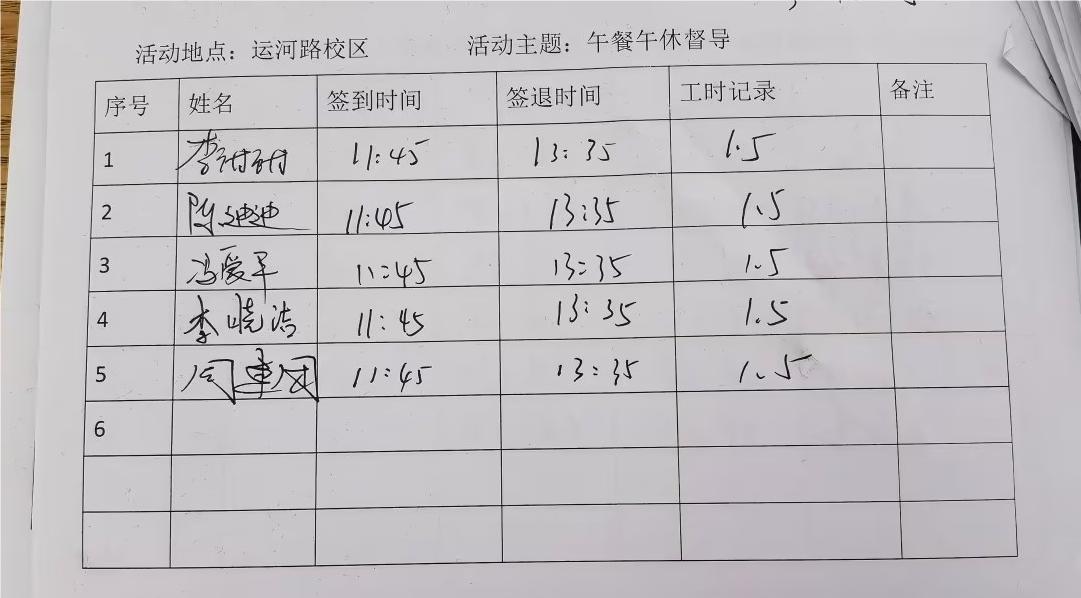 活动地点：运河路校区 活动主题：午餐午休督导
序号 姓名 签到时间 签退时间 工时记录 备注
1 李甜甜 11:45 13:35 1.5
2 陈迪迪 11:45 13:35 1.5
3 冯爱军 11:45 13:35 1.5
4 李晓洁 11:45 13:35 1.5
5 周 11:45 13:35 1.5
6